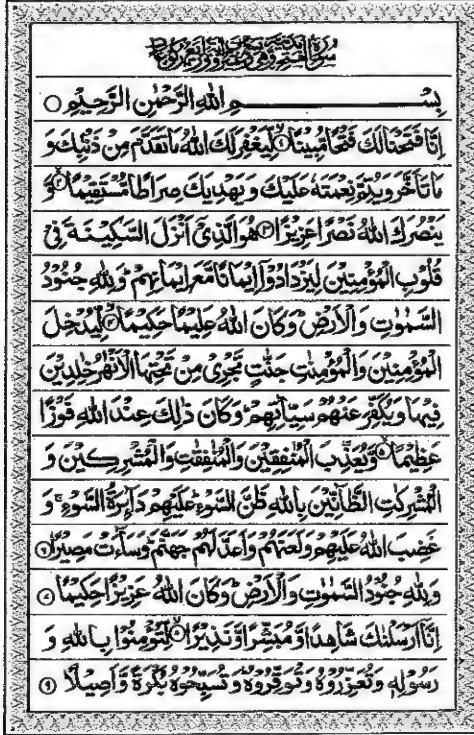 بِسْمِ اللهِ الرَّحْمٰنِ الرَّحِيْمِ ○
اِنَّا فَتَحْنَا لَكَ فَتْحًا مُّبِيْنًا ۙ﴿۱﴾ لِّيَغْفِرَ لَكَ اللهُ مَا تَقَدَّمَ مِنْ ذَنْۢبِكَ وَ
مَا تَاَخَّرَ وَيُتِمَّ نِعْمَتَهٗ عَلَيْكَ وَ يَهْدِيَكَ صِرَاطًا مُّسْتَقِيْمًا ۙ﴿۲﴾ وَّ
يَنْصُرَكَ اللهُ نَصْرًا عَزِيْزًا ﴿۳﴾ هُوَ الَّذِيْۤ اَنْزَلَ السَّكِيْنَةَ فِيْ
قُلُوْبِ الْمُؤْمِنِيْنَ لِيَزْدَادُوْۤا اِيْمَانًا مَّعَ اِيْمَانِهِمْ ؕ وَ لِلّٰهِ جُنُوْدُ
السَّمٰوٰتِ وَ الْاَرْضِ ؕ وَ كَانَ اللهُ عَلِيْمًا حَكِيْمًا ۙ﴿۴﴾ لِّيُدْخِلَ
الْمُؤْمِنِيْنَ وَ الْمُؤْمِنٰتِ جَنّٰتٍ تَجْرِيْ مِنْ تَحْتِهَا الْاَنْهٰرُ خٰلِدِيْنَ
فِيْهَا وَ يُكَفِّرَ عَنْهُمْ سَيِّاٰتِهِمْ ؕ وَ كَانَ ذٰلِكَ عِنْدَ اللهِ فَوْزًا
عَظِيْمًا ۙ﴿۵﴾ وَّ يُعَذِّبَ الْمُنٰفِقِيْنَ وَ الْمُنٰفِقٰتِ وَ الْمُشْرِكِيْنَ وَ
الْمُشْرِكٰتِ الظَّآنِّيْنَ بِاللهِ ظَنَّ السَّوْءِ ؕ عَلَيْهِمْ دَآئِرَةُ السَّوْءِ ۚ وَ
غَضِبَ اللهُ عَلَيْهِمْ وَ لَعَنَهُمْ وَ اَعَدَّ لَهُمْ جَهَنَّمَ ؕ وَ سَآءَتْ مَصِيْرًا ﴿۶﴾
وَ لِلّٰهِ جُنُوْدُ السَّمٰوٰتِ وَ الْاَرْضِ ؕ وَ كَانَ اللهُ عَزِيْزًا حَكِيْمًا ﴿۷﴾
اِنَّاۤ اَرْسَلْنٰكَ شَاهِدًا وَّ مُبَشِّرًا وَّ نَذِيْرًا ۙ﴿۸﴾ لِّتُؤْمِنُوْا بِاللهِ وَ
رَسُوْلِهٖ وَ تُعَزِّرُوْهُ وَ تُوَقِّرُوْهُ ؕ وَ تُسَبِّحُوْهُ بُكْرَةً وَّ اَصِيْلًا ﴿۹﴾